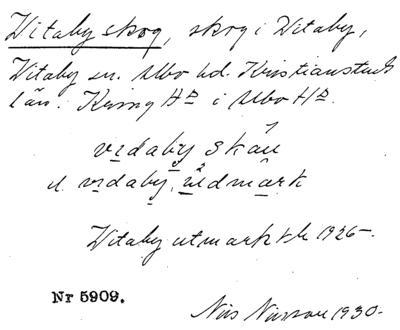 Vitaby skog, skog i Vitaby,
Vitaby sn. Albo hd. Kristianstads
län. i Albo Hd.
vidaby skåu
l. vidaby údmark
Vitaby utmark 1926-.
Nr 5909.
Nils Nilsson 1930.